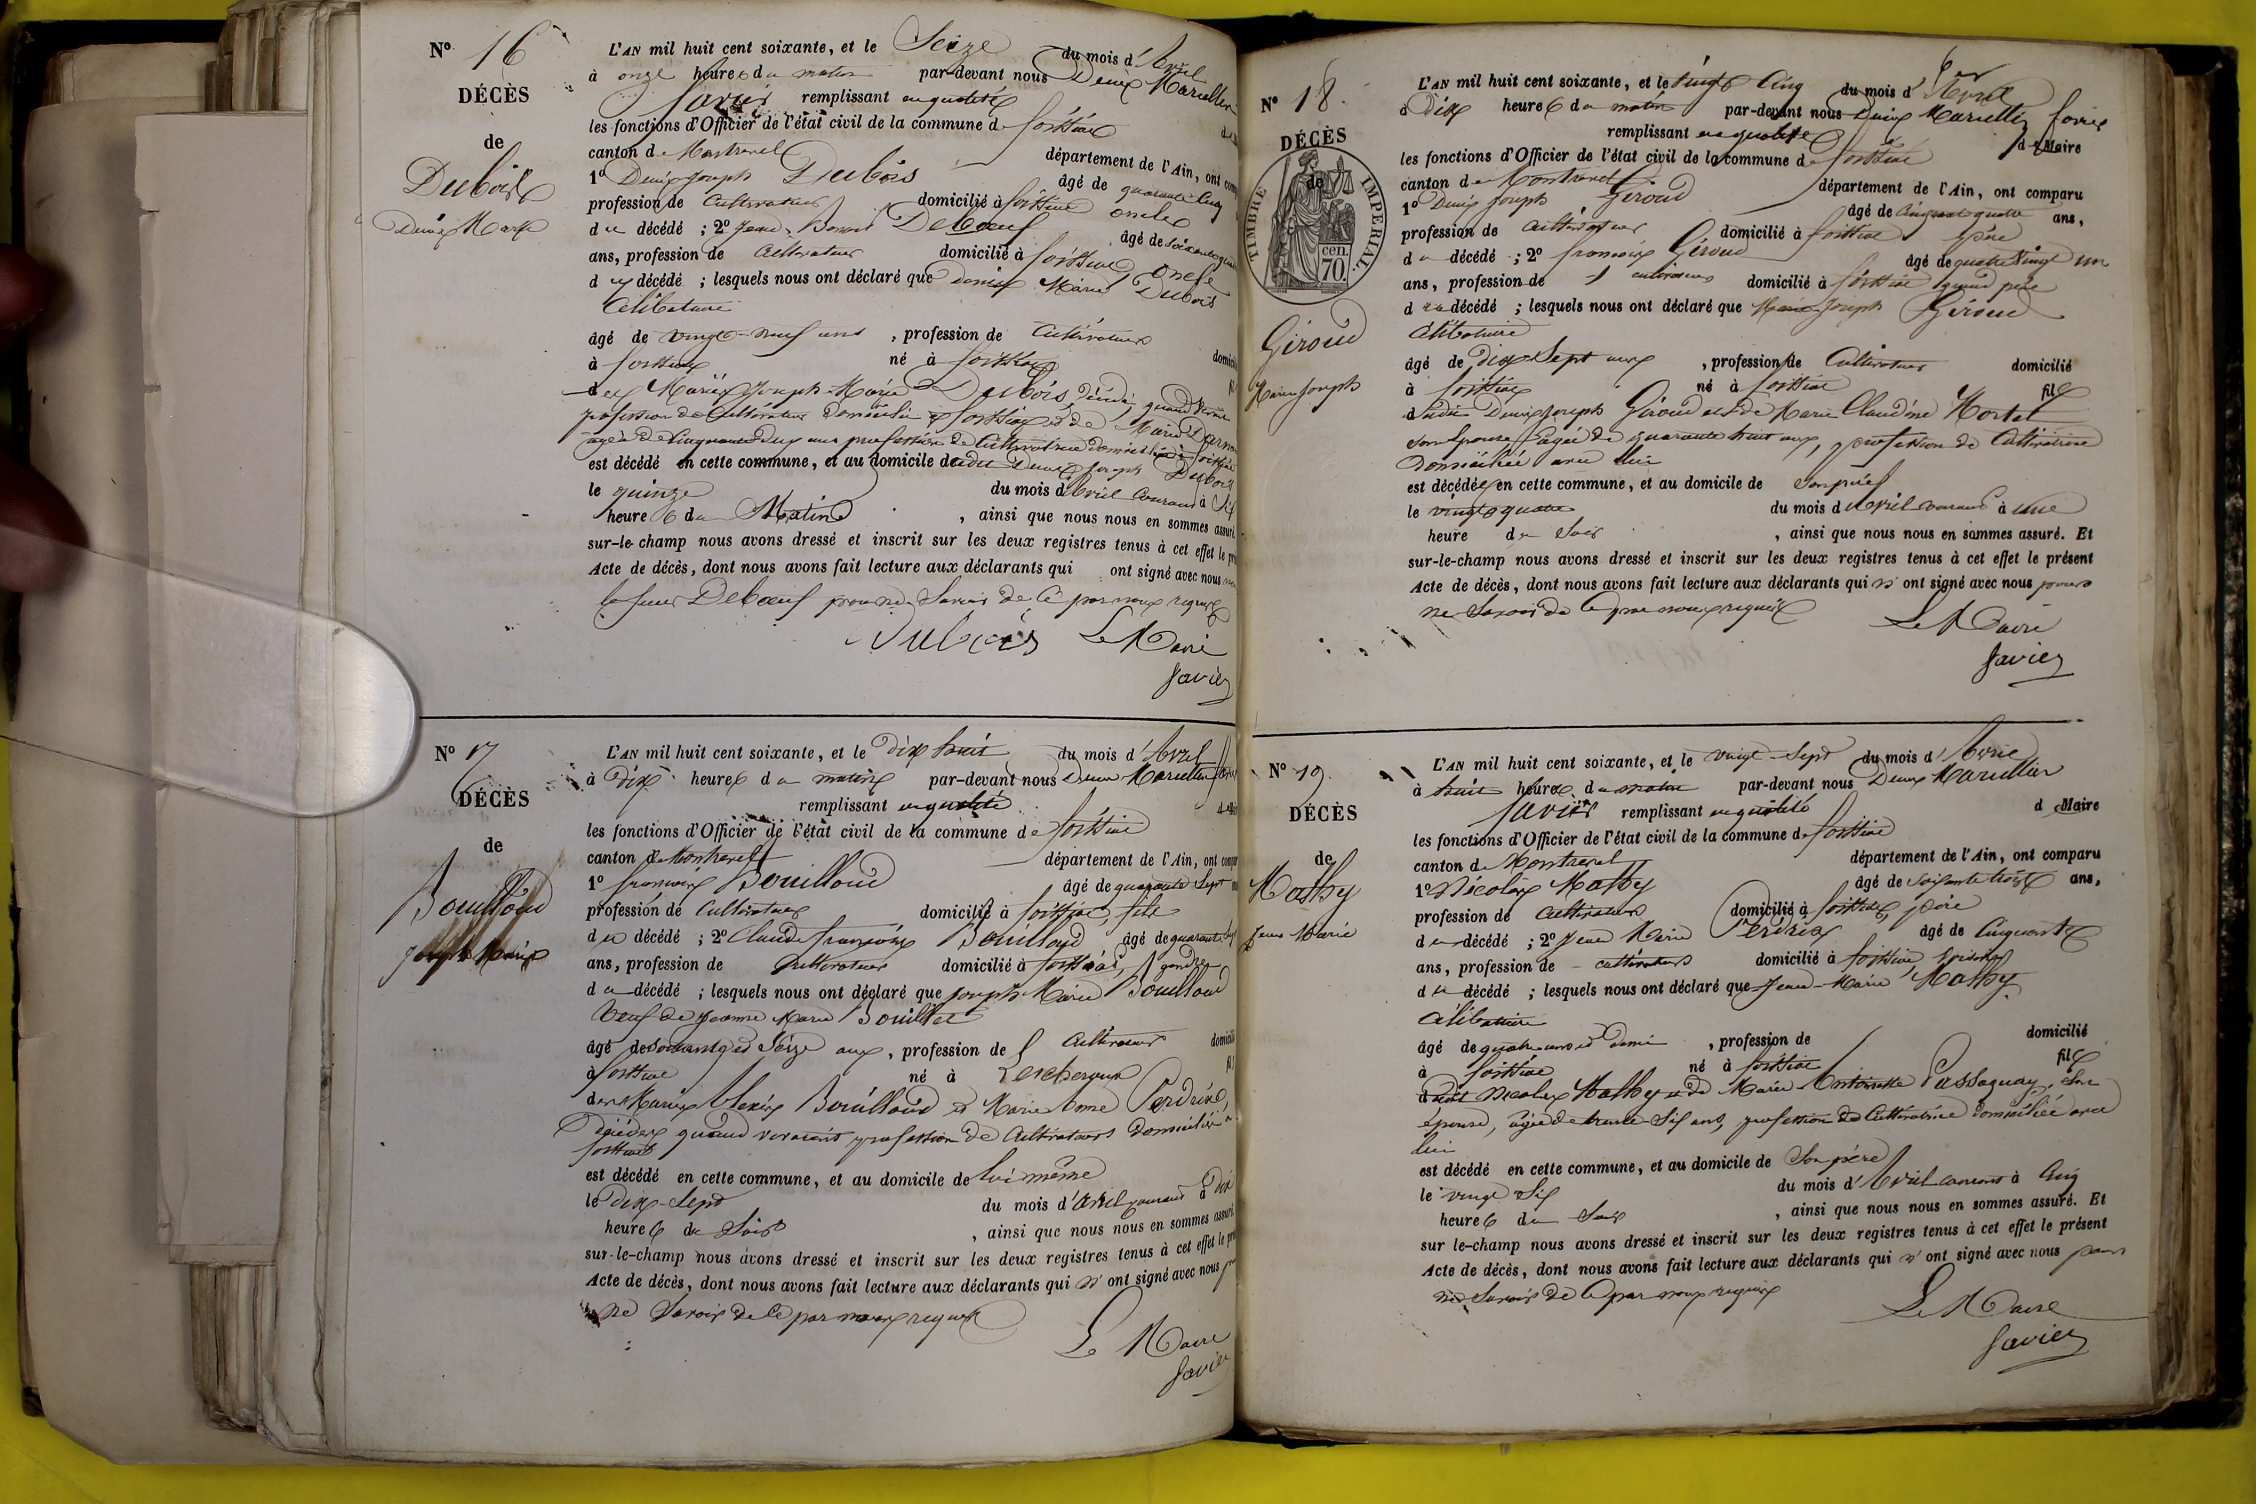 N° 16
DÉCÈS
de
Dubois
Denis Marie
L'AN mil huit cent soixante, et le Seize du mois d'Avril
à onze heures du matin par-devant nous Denis Marullier
Favier remplissant en qualité
les fonctions d'Officier de l'état civil de la commune de foissiat
canton de Montrevel département de l'Ain, ont
1° Denis Joseph Dubois âgé de quarante cinq
profession de Cultivateur domicilié à foissiat oncle
du décédé ; 2° Jean Benoit Deboeuf âgé de soixante
ans, profession de Cultivateur domicilié à foissiat, oncle
du décédé ; lesquels nous ont déclaré que denis Marie Dubois
Célibataire
âgé de vingt-neuf ans , profession de Cultivateur
à foissiat né à foissiat
des Mariés Joseph-Marie Dubois décédé, quand vivait
profession de Cultivateur domicilié à foissiat et de Marie
agée de Cinquante deux ans profession de Cultivatrice domiciliée à foissiat
est décédé en cette commune, et au domicile dudit Denis Joseph Dubois
le quinze du mois d'Avril Courant à Six
heures du Matin , ainsi que nous nous en sommes assuré.
sur-le-champ nous avons dressé et inscrit sur les deux registres tenus à cet effet le
Acte de décès, dont nous avons fait lecture aux déclarants qui ont signé avec nous
le sieur Deboeuf pour ne Savoir de Ce par nous requis
Dubois Le Maire
Favier
N° 17
DÉCÈS
de
Bouilloud
Joseph Marie
L'AN mil huit cent soixante, et le dix huit du mois d'Avril
à Dix heures du matin par-devant nous Denis Marullier
remplissant en qualité
les fonctions d'Officier de l'état civil de la commune de foissiat
canton de Montrevel département de l'Ain, ont
1° françois Bouilloud âgé de quarante Sept
profession de Cultivateur domicilié à foissiat, fils
du décédé ; 2° Claude françois Bouilloud âgé de quarante
ans, profession de Cultivateur domicilié à foissiat, gendre
du décédé ; lesquels nous ont déclaré que Joseph-Marie Bouilloud
Veuf de Jeanne Marie Bouillet
âgé de soixante et Seize ans , profession de Cultivateur
à foissiat né à Lescheroux
des Mariés Alexis Bouilloud et Marie Anne Perdrix,
Décédés quand vivaient profession de Cultivateurs domiciliés à
foissiat
est décédé en cette commune, et au domicile de lui même
le Dix-Sept du mois d'Avril courant à Dix
heures du Soir , ainsi que nous nous en sommes assuré.
sur-le-champ nous avons dressé et inscrit sur les deux registres tenus à cet effet le
Acte de décès, dont nous avons fait lecture aux déclarants qui n'ont signé avec nous
ne Savoir de Ce par nous requis
Le Maire
Favier
N° 18.
DÉCÈS
de
TIMBRE IMPERIAL.
70 cen.
Giroud
Marie Joseph
L'AN mil huit cent soixante, et le vingt Cinq du mois d'Avril
à Dix heures du matin par-devant nous Denis Marullier favier
remplissant en qualité de Maire
les fonctions d'Officier de l'état civil de la commune de foissiat
canton de Montrevel département de l'Ain, ont comparu
1° Denis Joseph Giroud âgé de Cinquante quatre ans,
profession de Cultivateur domicilié à foissiat père
du décédé ; 2° françois Giroud âgé de quatre vingt un
ans, profession de cultivateur domicilié à foissiat grand père
du décédé ; lesquels nous ont déclaré que Marie Joseph Giroud
Célibataire
âgé de dix Sept ans , profession de Cultivateur domicilié
à foissiat né à foissiat fils
dudit Denis Joseph Giroud et de Marie Claudine Mortel
son Épouse, agée de quarante huit ans, profession de Cultivatrice
domiciliée avec lui
est décédé en cette commune, et au domicile de son père
le vingt quatre du mois d'Avril courant à une
heure du Soir , ainsi que nous nous en sommes assuré. Et
sur-le-champ nous avons dressé et inscrit sur les deux registres tenus à cet effet le présent
Acte de décès, dont nous avons fait lecture aux déclarants qui n'ont signé avec nous pour
ne Savoir de Ce par nous requis
Le Maire
Favier
N° 19.
DÉCÈS
de
Mathy
Jean Marie
L'AN mil huit cent soixante, et le vingt-Sept du mois d'Avril
à huit heures du matin par-devant nous Denis Marullier
Favier remplissant en qualité de Maire
les fonctions d'Officier de l'état civil de la commune de foissiat
canton de Montrevel département de l'Ain, ont comparu
1° Nicolas Mathy âgé de soixante trois ans,
profession de Cultivateur domicilié à foissiat, père
du décédé ; 2° Jean Marie Perdrix âgé de Cinquante
ans, profession de cultivateur domicilié à foissiat voisin
du décédé ; lesquels nous ont déclaré que Jean-Marie Mathy
Célibataire
âgé de quatre ans et demi , profession de domicilié
à foissiat né à foissiat fils
dudit Nicolas Mathy et de Marie-Antoinette Passaquay, Son
épouse, agée de trente Six ans, profession de Cultivatrice domiciliée avec
lui
est décédé en cette commune, et au domicile de Son père
le vingt Six du mois d'Avril courant à Cinq
heures du Soir , ainsi que nous nous en sommes assuré. Et
sur le-champ nous avons dressé et inscrit sur les deux registres tenus à cet effet le présent
Acte de décès, dont nous avons fait lecture aux déclarants qui n'ont signé avec nous pour
ne Savoir de Ce par nous requis
Le Maire
Favier